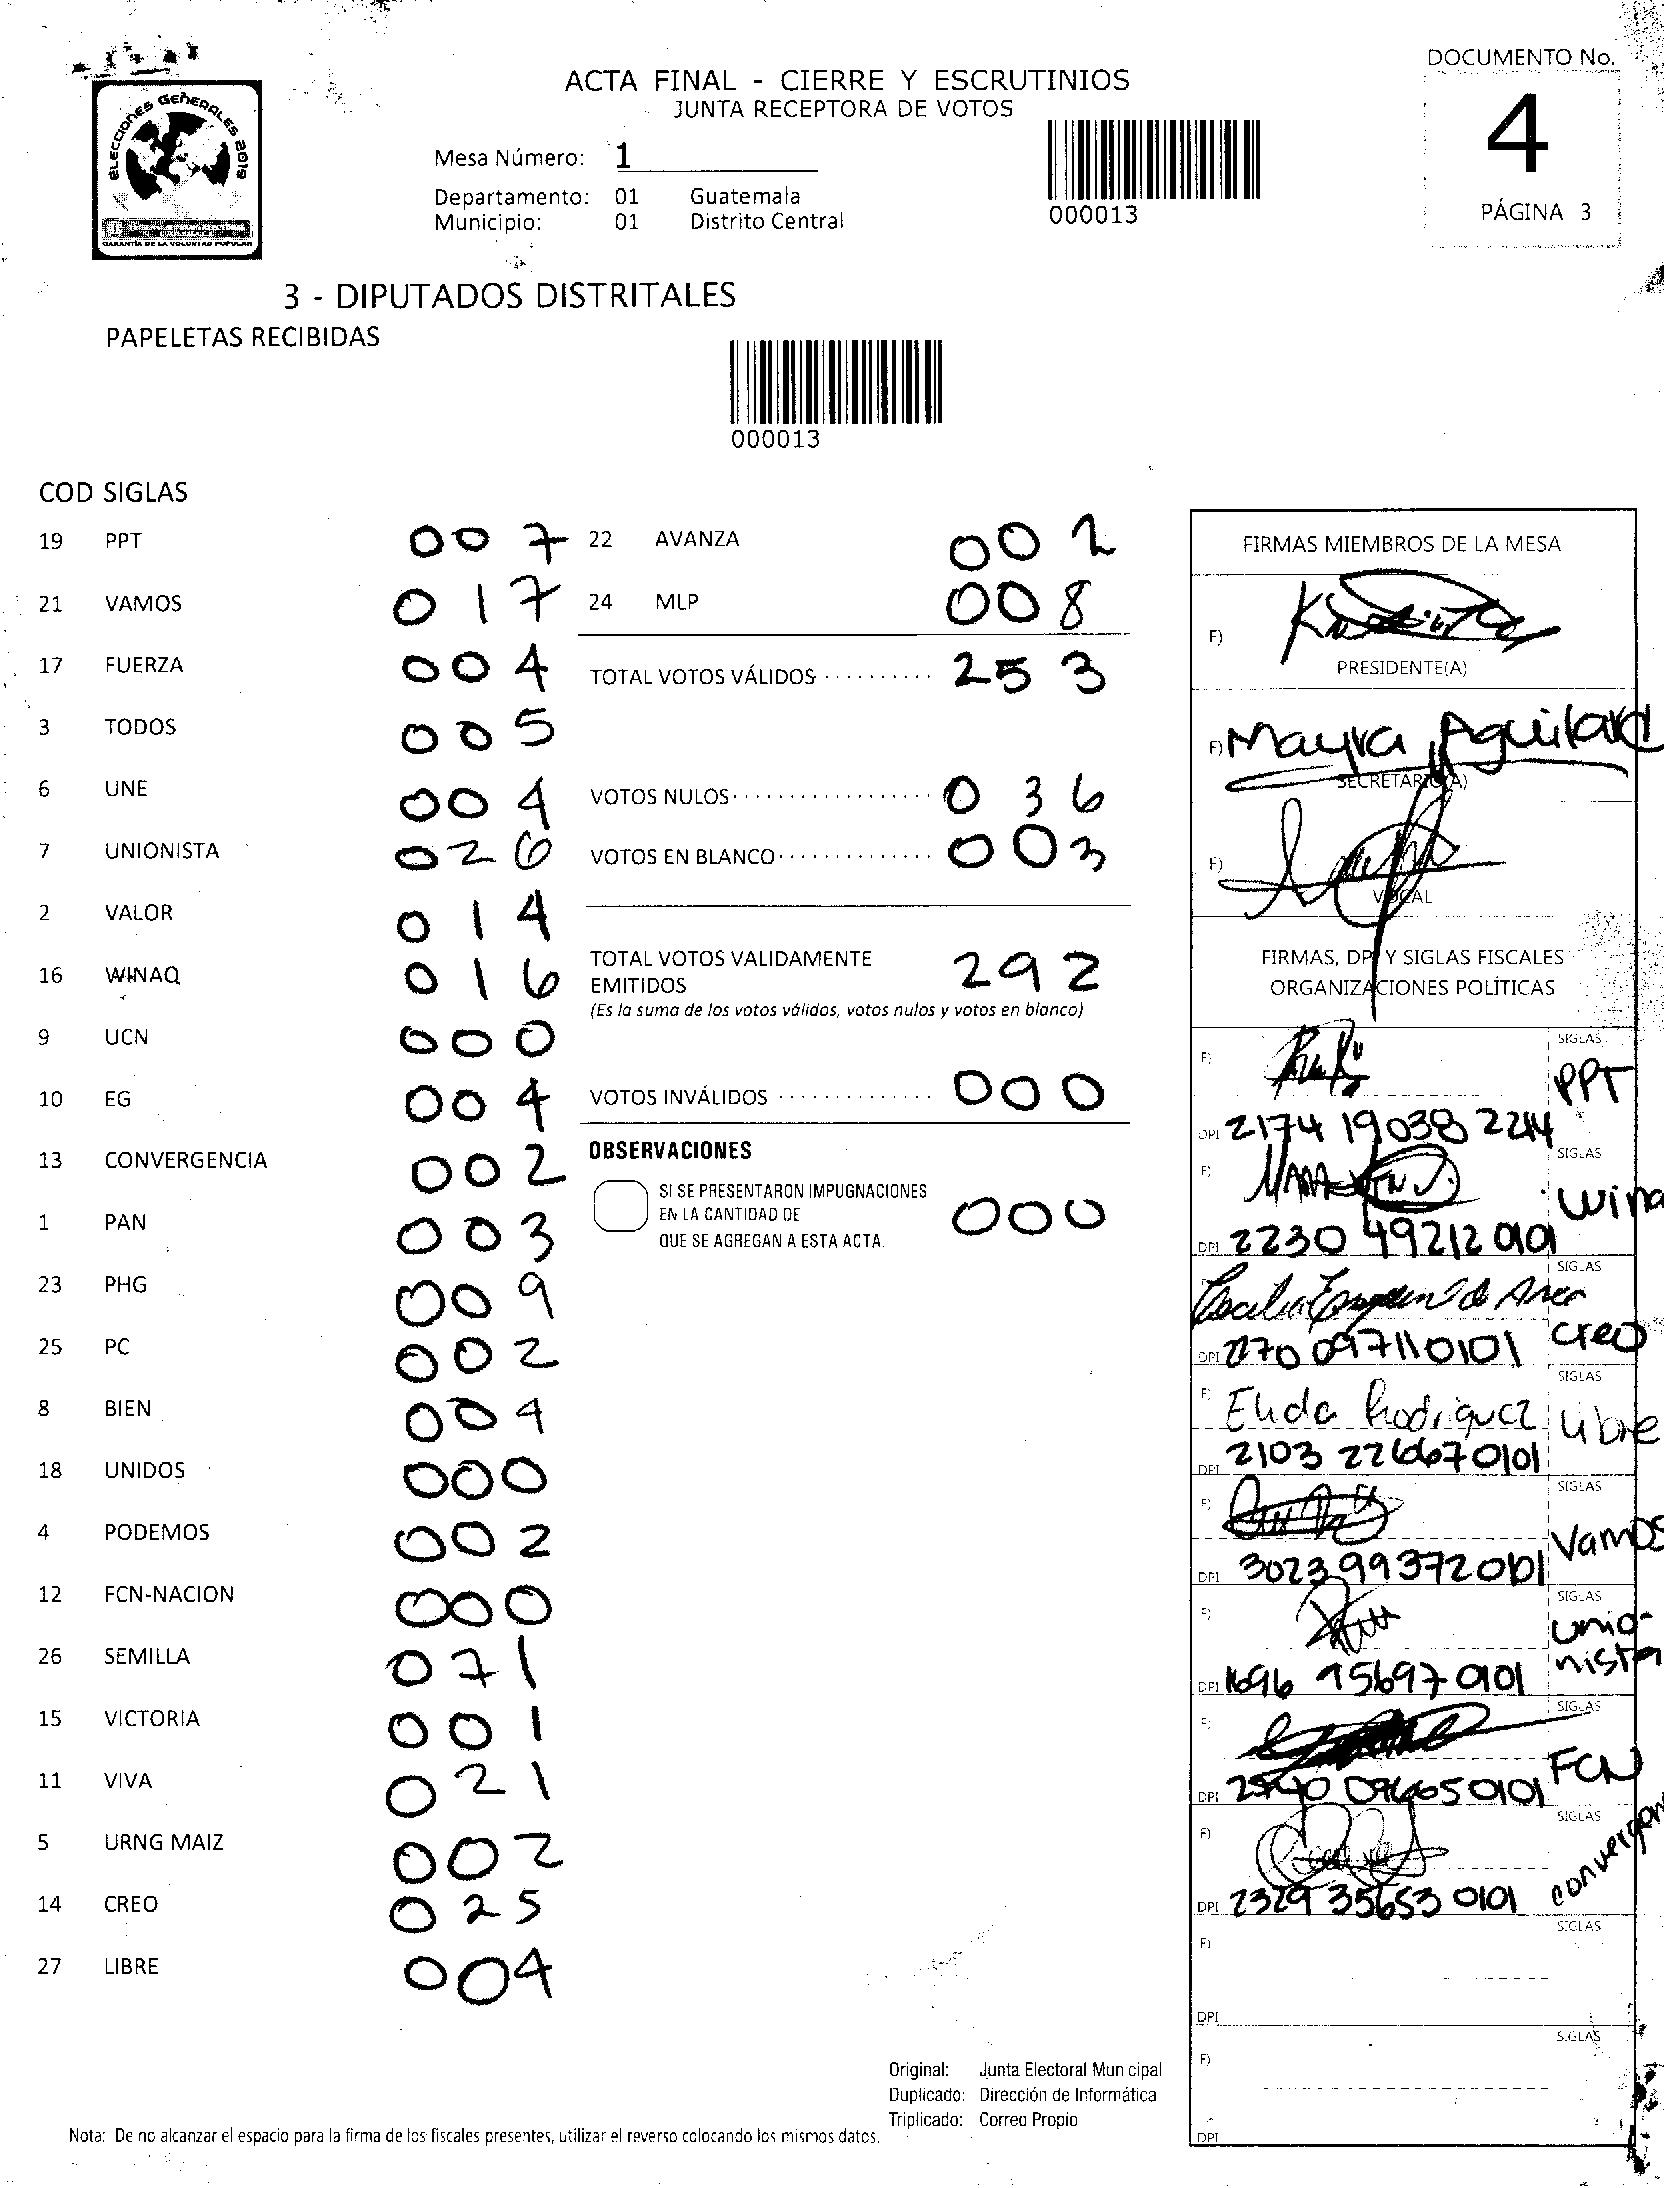 ACTA FINAL - CIERRE Y ESCRUTINIOS
JUNTA RECEPTORA DE VOTOS
DOCUMENTO No.
4
PÁGINA 3
ELECCIONES GENERALES 2019
GARANTÍA DE LA VOLUNTAD POPULAR
Mesa Número: 1
Departamento: 01 Guatemala
Municipio: 01 Distrito Central
000013
3 - DIPUTADOS DISTRITALES
PAPELETAS RECIBIDAS
000013
COD SIGLAS
19 PPT 007
21 VAMOS 017
17 FUERZA 004
3 TODOS 005
6 UNE 004
7 UNIONISTA 026
2 VALOR 014
16 WINAQ 016
9 UCN 000
10 EG 004
13 CONVERGENCIA 002
1 PAN 003
23 PHG 009
25 PC 002
8 BIEN 004
18 UNIDOS 000
4 PODEMOS 002
12 FCN-NACION 000
26 SEMILLA 071
15 VICTORIA 001
11 VIVA 021
5 URNG MAIZ 002
14 CREO 025
27 LIBRE 004
22 AVANZA 002
24 MLP 008
TOTAL VOTOS VÁLIDOS 253
VOTOS NULOS 036
VOTOS EN BLANCO 003
TOTAL VOTOS VALIDAMENTE
EMITIDOS 292
(Es la suma de los votos válidos, votos nulos y votos en blanco)
VOTOS INVÁLIDOS 000
OBSERVACIONES
SI SE PRESENTARON IMPUGNACIONES
EN LA CANTIDAD DE 000
QUE SE AGREGAN A ESTA ACTA.
FIRMAS MIEMBROS DE LA MESA
F)
PRESIDENTE(A)
F) Mayra Aguilar
SECRETARIO(A)
F)
VOCAL
FIRMAS, DPI Y SIGLAS FISCALES
ORGANIZACIONES POLÍTICAS
F) SIGLAS
PPT
DPI 2174 19038 2214
F) SIGLAS
Wina
DPI 2230 49212 0101
SIGLAS
Creo
DPI 2270 09711 0101
F) Elida Rodriguez SIGLAS
Libre
DPI 2103 22667 0101
F) SIGLAS
Vamos
DPI 3023 99372 0101
F) SIGLAS
Unio-
nista
DPI 1696 15697 0101
F) SIGLAS
FCN
DPI 09665 0101
F) SIGLAS
DPI 2329 35653 0101
F) SIGLAS
DPI
F) SIGLAS
DPI
Original: Junta Electoral Municipal
Duplicado: Dirección de Informática
Triplicado: Correo Propio
Nota: De no alcanzar el espacio para la firma de los fiscales presentes, utilizar el reverso colocando los mismos datos.